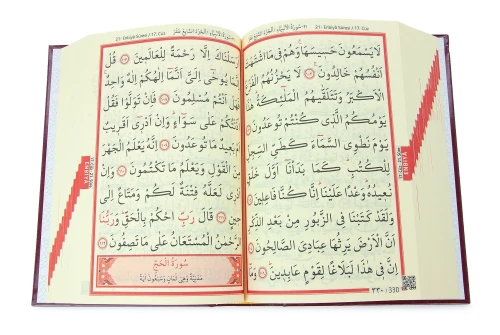 21- Enbiyâ Sûresi / 17. Cüz
لَا يَسْمَعُونَ حَسِيسَهَا وَهُمْ فِي مَا اشْتَهَتْ
اَنْفُسُهُمْ خَالِدُونَ ١٠٢ لَا يَحْزُنُهُمُ الْفَزَعُ
الْاَكْبَرُ وَتَتَلَقّٰيهُمُ الْمَلٰٓئِكَةُ هٰذَا
يَوْمُكُمُ الَّذِي كُنْتُمْ تُوعَدُونَ ١٠٣
يَوْمَ نَطْوِي السَّمَٓاءَ كَطَيِّ السِّجِلِّ
لِلْكُتُبِ كَمَا بَدَأْنَٓا اَوَّلَ خَلْقٍ
نُعِيدُهُ وَعْدًا عَلَيْنَا اِنَّا كُنَّا فَاعِلِينَ ١٠٤
وَلَقَدْ كَتَبْنَا فِي الزَّبُورِ مِنْ بَعْدِ الذِّكْرِ
اَنَّ الْاَرْضَ يَرِثُهَا عِبَادِيَ الصَّالِحُونَ ١٠٥
اِنَّ فِي هٰذَا لَبَلَاغًا لِقَوْمٍ عَابِدِينَ ١٠٦ وَمَٓا
٣٣٠ 330
21- Enbiyâ Sûresi / 17. Cüz
اَرْسَلْنَاكَ اِلَّا رَحْمَةً لِلْعَالَمِينَ ١٠٧ قُلْ
اِنَّمَا يُوحٰٓى اِلَيَّ اَنَّمَٓا اِلٰهُكُمْ اِلٰهٌ وَاحِدٌ
فَهَلْ اَنْتُمْ مُسْلِمُونَ ١٠٨ فَاِنْ تَوَلَّوْا فَقُلْ
اٰذَنْتُكُمْ عَلٰى سَوَٓاءٍ وَاِنْ اَدْرِٓي اَقَرِيبٌ
اَمْ بَعِيدٌ مَا تُوعَدُونَ ١٠٩ اِنَّهُ يَعْلَمُ الْجَهْرَ
مِنَ الْقَوْلِ وَيَعْلَمُ مَا تَكْتُمُونَ ١١٠ وَاِنْ
اَدْرِي لَعَلَّهُ فِتْنَةٌ لَكُمْ وَمَتَاعٌ اِلٰى
حِينٍ ١١١ قَالَ رَبِّ احْكُمْ بِالْحَقِّ وَرَبُّنَا
الرَّحْمٰنُ الْمُسْتَعَانُ عَلٰى مَا تَصِفُونَ ١١٢
سُورَةُ الْحَجِّ
مَدَنِيَّةٌ وَهِيَ ثَمَانٍ وَسَبْعُونَ اٰيَةً